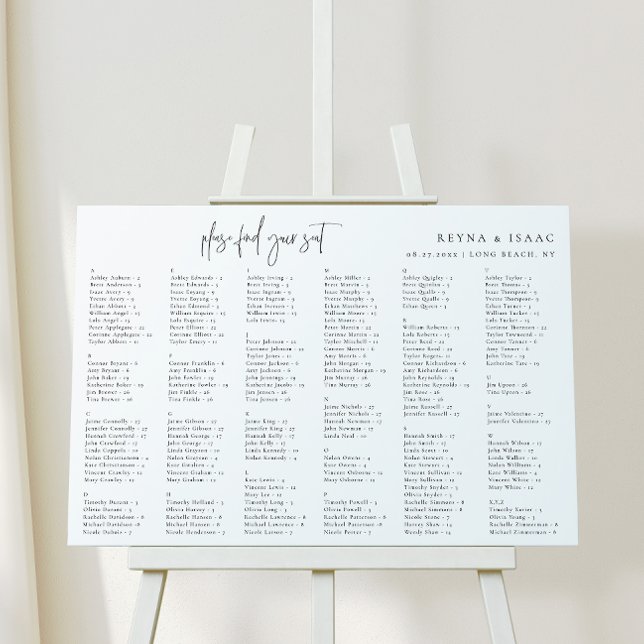 please find your seat
REYNA & ISAAC
08.27.20XX | LONG BEACH, NY
A
Ashley Auburn - 2
Brett Anderson - 3
Isaac Avery - 9
Yvette Avery - 9
Ethan Abbott - 5
William Angel - 13
Lola Angel - 13
Peter Applegate - 22
Corinne Applegate - 22
Taylor Abbott - 11
B
Connor Bryant - 6
Amy Bryant - 6
John Baker - 19
Katherine Baker - 19
Jim Brewer - 26
Tina Brewer - 26
C
Jaime Connolly - 27
Jennifer Connolly - 27
Hannah Crawford - 17
John Crawford - 17
Linda Coppola - 10
Nolan Christensen - 4
Kate Christensen - 4
Vincent Crawley - 12
Mary Crawley - 12
D
Timothy Durant - 3
Olivia Durant - 3
Rachelle Davidson - 8
Michael Davidson - 8
Nicole Dubois - 7
E
Ashley Edwards - 2
Brett Edwards - 2
Isaac Enyang - 9
Yvette Enyang - 9
Ethan Edmond - 5
William Esquire - 13
Lola Esquire - 13
Peter Elliott - 22
Corinne Elliott - 22
Taylor Emery - 11
F
Connor Franklin - 6
Amy Franklin - 6
John Fowler - 19
Katherine Fowler - 19
Jim Finkle - 26
Tina Finkle - 26
G
Jaime Gibson - 27
Jennifer Gibson - 27
Hannah George - 17
John George - 17
Linda Grayson - 10
Nolan Gwailen - 4
Kate Gwailen - 4
Vincent Graham - 12
Mary Graham - 12
H
Timothy Holland - 3
Olivia Harvey - 3
Rachelle Hansen - 8
Michael Hansen - 8
Nicole Henderson - 7
I
Ashley Irving - 2
Brett Irving - 2
Isaac Ingram - 9
Yvette Ingram - 9
Ethan Iverson - 5
William Lewis - 13
Lola Lewis - 13
J
Peter Johnson - 22
Corinne Johnson - 22
Taylor Jones - 11
Connor Jackson - 6
Amy Jackson - 6
John Jennings - 19
Katherine Jacobs - 19
Jim Jensen - 26
Tina Jensen - 26
K
Jaime King - 27
Jennifer King - 27
Hannah Kelly - 17
John Kelly - 17
Linda Kennedy - 10
Nolan Kennedy - 4
L
Kate Lewis - 4
Vincent Lewis - 12
Mary Lee - 12
Timothy Long - 3
Olivia Long - 3
Rachelle Lawrence - 8
Michael Lawrence - 8
Nicole Larson - 7
M
Ashley Miller - 2
Brett Marvin - 2
Isaac Murphy - 9
Yvette Murphy - 9
Ethan Moore - 5
William Moore - 13
Lola Moore - 13
Peter Martin - 22
Corinne Martin - 22
Taylor Mitchell - 11
Connor Morris - 6
Amy Morris - 6
John Morgan - 19
Katherine Morgan - 19
Jim Murray - 26
Tina Murray - 26
N
Jaime Nichols - 27
Jennifer Nichols - 27
Hannah Newman - 17
John Newman - 17
Linda Neal - 10
O
Nolan Owens - 4
Kate Owens - 4
Vincent Osborne - 12
Mary Osborne - 12
P
Timothy Powell - 3
Olivia Powell - 3
Rachelle Patterson - 8
Michael Patterson - 8
Nicole Porter - 7
Q
Ashley Quigley - 2
Brett Quinlan - 2
Isaac Quallo - 9
Yvette Quallo - 9
Ethan Queen - 5
R
William Roberts - 13
Lola Roberts - 13
Peter Reed - 22
Corinne Reed - 22
Taylor Rogers - 11
Connor Richardson - 6
Amy Richardson - 6
John Reynolds - 19
Katherine Reynolds - 19
Jim Rose - 26
Tina Rose - 26
Jaime Russell - 27
Jennifer Russell - 27
S
Hannah Smith - 17
John Smith - 17
Linda Scott - 10
Nolan Stewart - 4
Kate Stewart - 4
Vincent Sullivan - 12
Mary Sullivan - 12
Timothy Snyder - 3
Olivia Snyder - 3
Rachelle Simmons - 8
Michael Simmons - 8
Nicole Stone - 7
Harvey Shaw - 14
Wendy Shaw - 14
T
Ashley Taylor - 2
Brett Thomas - 2
Isaac Thompson - 9
Yvette Thompson - 9
Ethan Tucker - 5
William Tucker - 13
Lola Tucker - 13
Peter Thornton - 22
Corinne Thornton - 22
Taylor Townsend - 11
Connor Tanner - 6
Amy Tanner - 6
John Tate - 19
Katherine Tate - 19
U
Jim Upson - 26
Tina Upson - 26
V
Jaime Valentine - 27
Jennifer Valentine - 27
W
Hannah Wilson - 17
John Wilson - 17
Linda Walker - 10
Nolan Williams - 4
Kate Williams - 4
Vincent White - 12
Mary White - 12
X,Y,Z
Timothy Xavier - 3
Olivia Young - 3
Rachelle Zimmerman - 8
Michael Zimmerman - 8